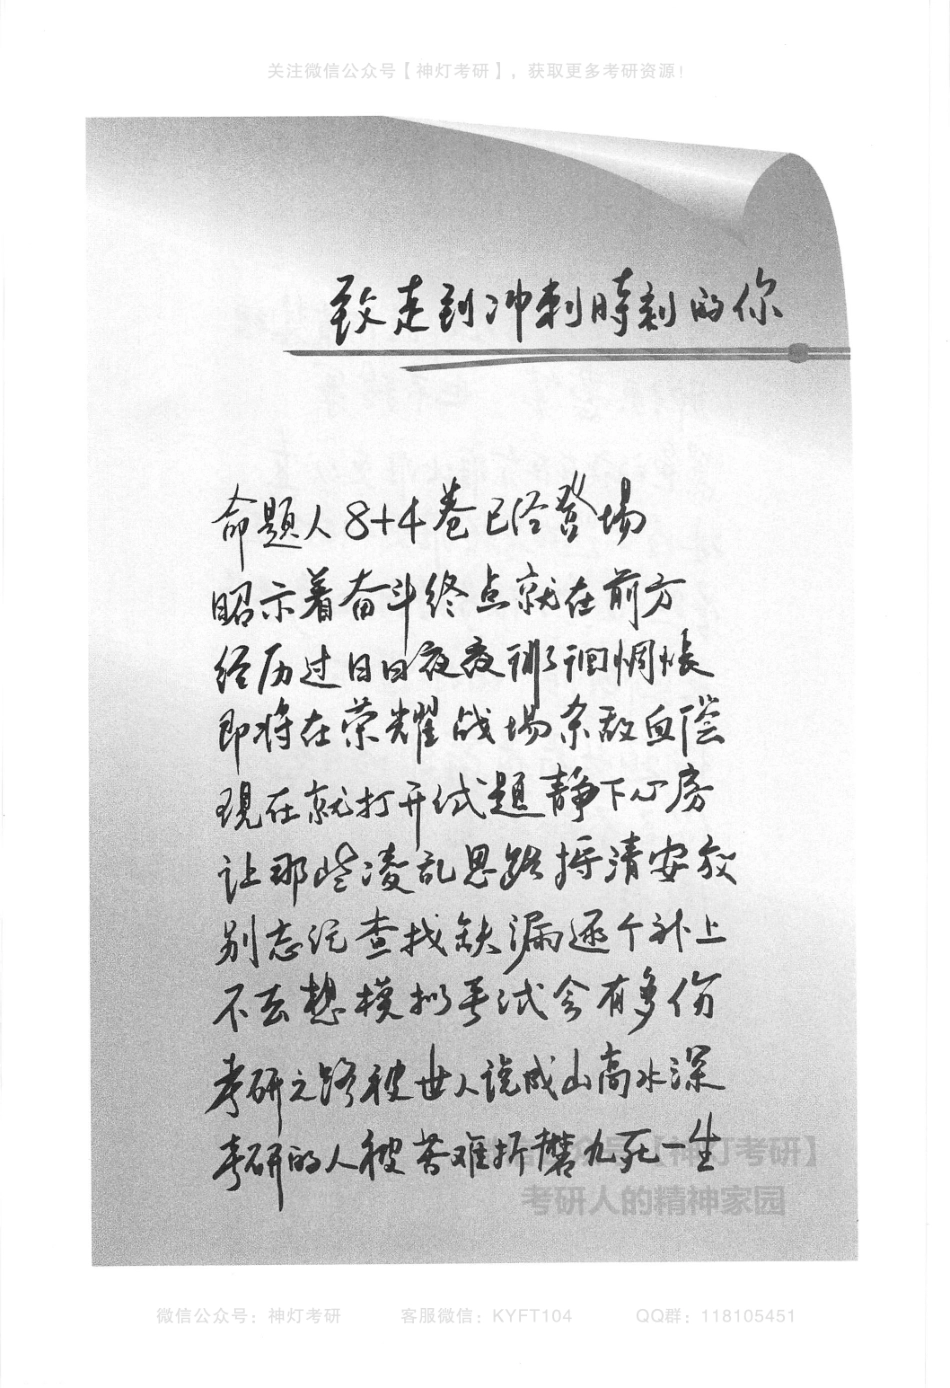 关注微信公众号【神灯考研】，获取更多考研资源！
致走到冲刺時刻的你
命題人8+4卷已经登場
昭示着奋斗终点就在前方
经历过日日夜夜彷徊惆怅
即将在荣耀战场杀敌血偿
現在就打开试題静下心房
让那些凌乱思路捋清安放
别忘记查找缺漏逐个补上
不去想模拟考试会有多伤
考研之路被世人说成山高水深
考研的人被苦难折磨九死一生
众号【神灯考研】
考研人的精神家园
微信公众号：神灯考研 客服微信：KYFT104 QQ群：118105451